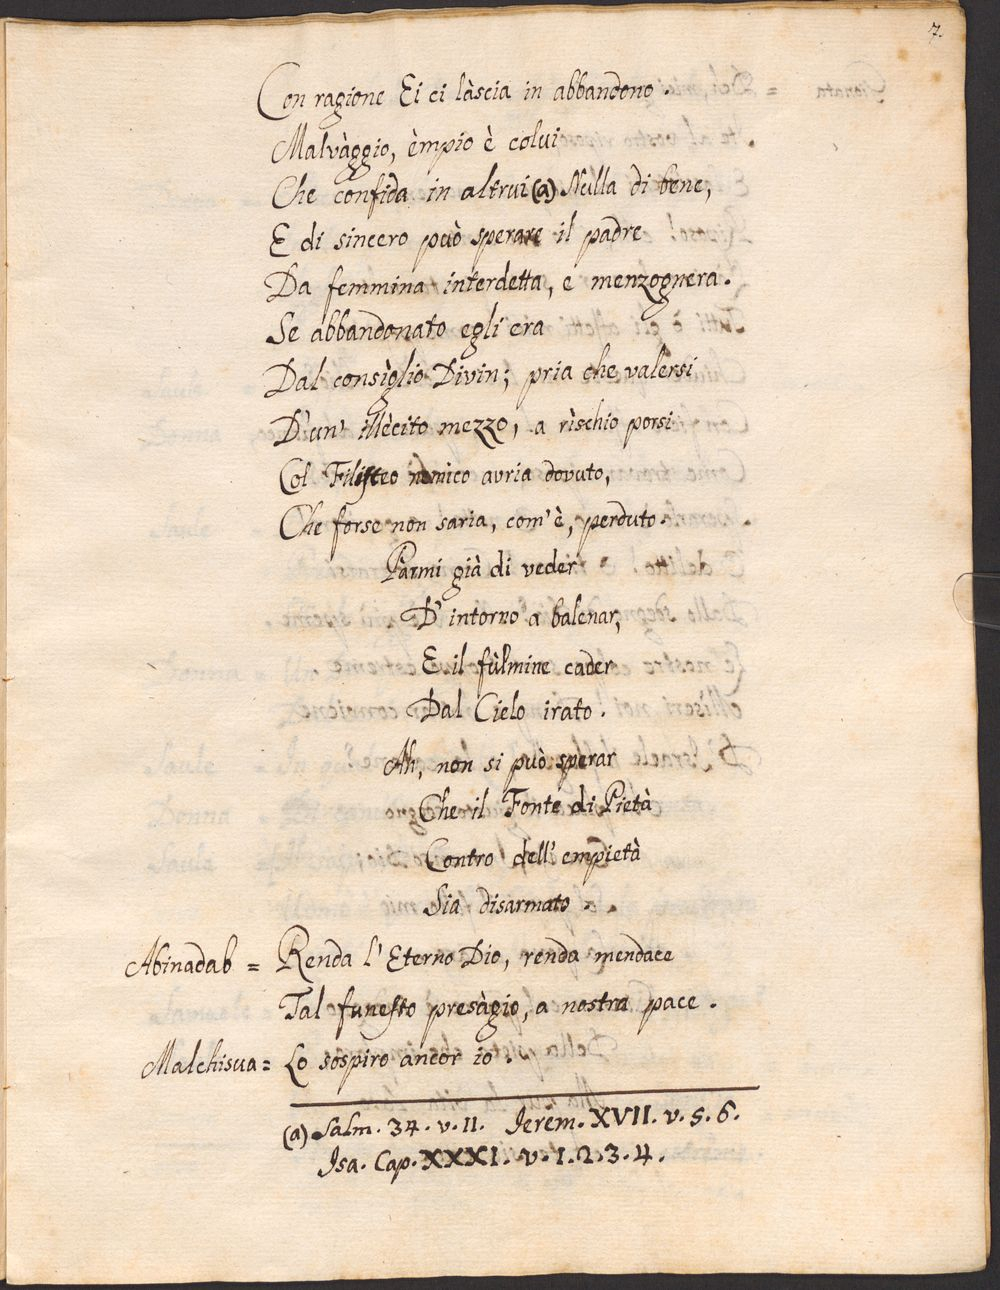 7.
Con ragione Ei ci làscia in abbandono.
Malvàggio, èmpio è colui
Che confida in altrui (a) Nulla di bene,
E di sincero può sperare il padre
Da femmina interdetta, e menzognera.
Se abbandonato egli era
Dal consìglio Divin; pria che valersi
D'un' illècito mezzo, a rìschio porsi
Col Filisteo nemico avria dovuto,
Che forse non saria, com'è, perduto.
Parmi già di veder
D'intorno a balenar,
E il fùlmine cader
Dal Cielo irato.
Ah, non si può sperar
Che il Fonte di Pietà
Contro dell'empietà
Sia disarmato =.
Abinadab = Renda l'Eterno Dio, renda mendace
Tal funesto presàgio, a nostra pace.
Malchisua = Lo sospiro ancor io.
(a) Salm. 34. v. 11. Jerem. XVII. v. 5. 6.
Isa. Cap. XXXI. v. 1. 2. 3. 4.